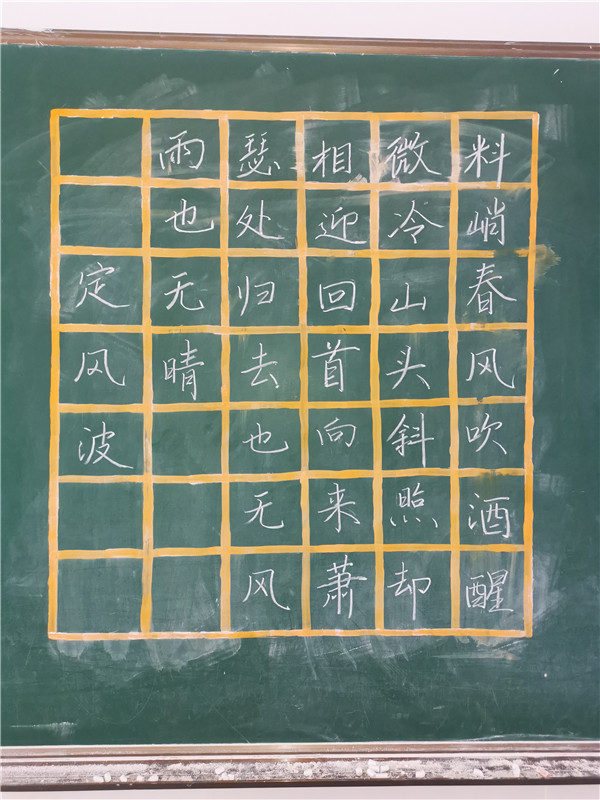 料峭春风吹酒醒
微冷山头斜照却
相迎回首向来萧
瑟处归去也无风
雨也无晴
定风波